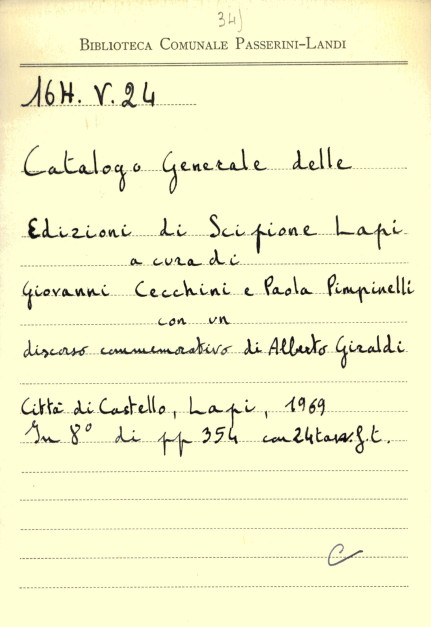 34)
BIBLIOTECA COMUNALE PASSERINI-LANDI
16H. V. 24
Catalogo Generale delle
Edizioni di Scipione Lapi
a cura di
Giovanni Cecchini e Paola Pimpinelli
con un
discorso commemorativo di Alberto Giraldi
Città di Castello, Lapi, 1969
In 8° di pp 354 con 24 tavv. f. t.
C